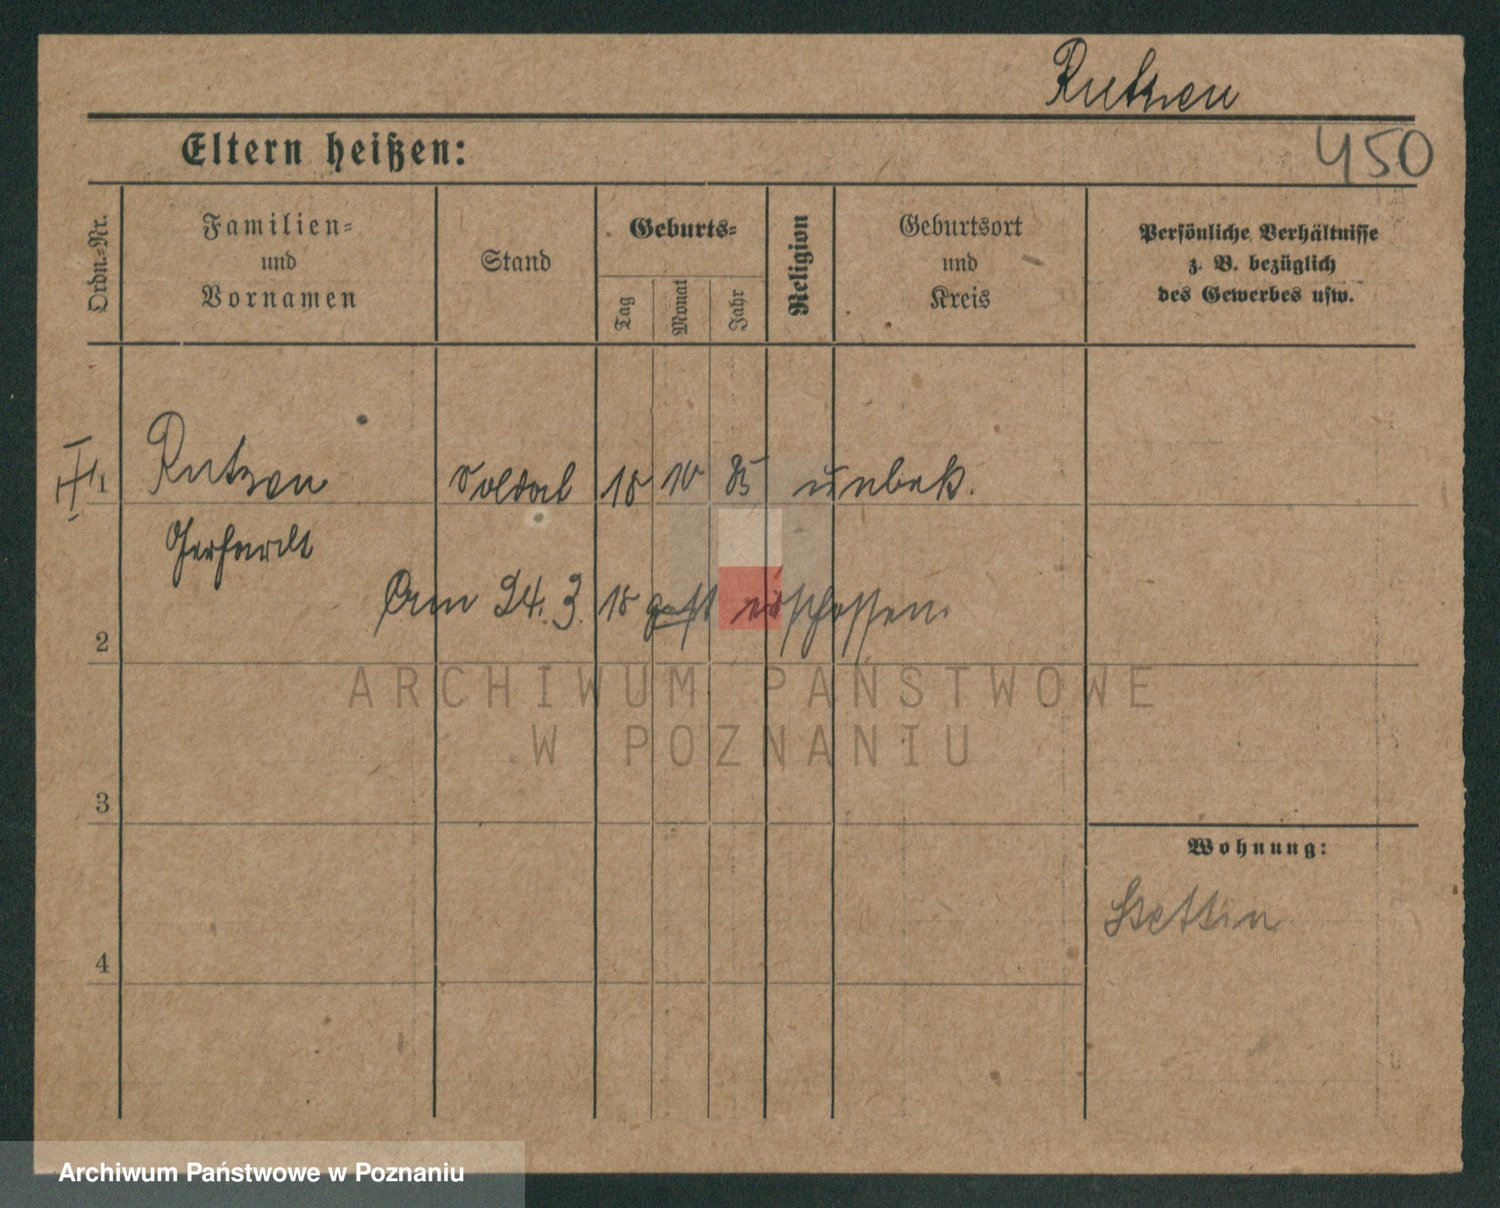 Rutzen
450
Eltern heißen:
Ordn.-Nr.
Familien-
und
Vornamen
Stand
Geburts-
Tag
Monat
Jahr
Religion
Geburtsort
und
Kreis
Persönliche Verhältnisse
z. B. bezüglich
des Gewerbes usw.
1 Rutzen Soldat 18 10 85 unbek.
Gerhardt
Am 24. 3. 18 erschossen.
2
ARCHIWUM PAŃSTWOWE
W POZNANIU
3
Wohnung:
Stettin
4
Archiwum Państwowe w Poznaniu